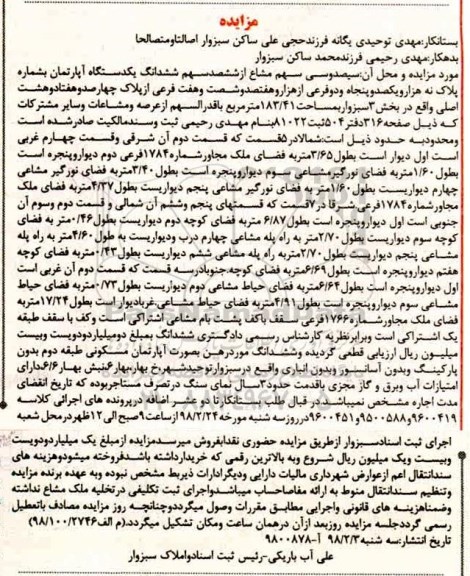 مزایده
بستانکار:مهدی توحیدی یگانه فرزندحجی علی ساکن سبزوار اصالتاومتصالحا
بدهکار:مهدی رحیمی فرزندمحمد ساکن سبزوار
مورد مزایده و محل آن:سیصدوسی سهم مشاع ازششصدسهم ششدانگ یکدستگاه آپارتمان بشماره
پلاک نه هزارویکصدوپنجاه ودوفرعی ازهزاروهفتصدوشصت وهفت فرعی ازپلاک چهارصدوهفتادوهشت
اصلی واقع در بخش۳سبزواربمساحت۱۸۳/۴۱مترمربع باقدرالسهم ازعرصه ومشاعات وسایر مشترکات
که ذیل صفحه۳۱۶دفتر۵۰۴ثبت۸۱۰۲۲بنام مهدی رحیمی ثبت وسندمالکیت صادرشده است
ومحدودبه حدود ذیل است:شمالادر۵قسمت که قسمت دوم آن شرقی وقسمت چهارم غربی
است اول دیوار است بطول۳/۶۵متربه فضای ملک مجاورشماره۱۷۸۴فرعی دوم دیواروپنجره است
بطول۱/۶۰متربه فضای نورگیر مشاعی سوم دیواروپنجره است بطول۳/۴۰متربه فضای نورگیر مشاعی
چهارم دیواریست بطول۱/۶۰متربه فضای نورگیر مشاعی پنجم دیواریست بطول۴/۳۷متربه فضای ملک
مجاورشماره۱۷۸۴فرعی شرقا در۷قسمت که قسمتهای پنجم وششم آن شمالی و قسمت دوم وسوم آن
جنوبی است اول دیواروپنجره است بطول۶/۸۷ متربه فضای کوچه دوم دیواریست بطول۰/۴۶متر به فضای
کوچه سوم دیواریست بطول۲/۷۰متر به راه پله مشاعی چهارم درب ودیواریست به طول۴/۶۰متر به راه پله
مشاعی پنجم دیواریست بطول۲/۷۰متربه راه پله مشاعی ششم دیواریست بطول۰/۴۳متربه فضای کوچه
هفتم دیواروپنجره است بطول۶/۶۹متربه فضای کوچه.جنوبادرسه قسمت که قسمت دوم آن غربی است
اول دیواروپنجره است بطول۶/۶۴متربه فضای حیاط مشاعی دوم دیواریست بطول۰/۷۳متر به فضای حیاط
مشاعی سوم دیواروپنجره است بطول۴/۹۱متربه فضای حیاط مشاعی.غربادیوار است بطول۱۷/۲۴متربه
فضای ملک مجاورشماره۱۷۶۶فرعی سقف باکف است بام سقف مشاعی اشتراکی است وکف با سقف طبقه
یک اشتراکی است وبرابرنظریه کارشناس رسمی دادگستری ششدانگ بمبلغ دومیلیاردودویست وبیست
میلیون ریال ارزیابی قطعی گردیده وششدانگ موردرهن بصورت آپارتمان مسکونی طبقه دوم بدون
پارکینگ وبدون آسانسور وبدون انباری واقع درسبزوارتوحیدشهر
امتیازات آب وبرق و گاز مجزی باقدمت حدود۳سال نمای سنگ درتصرف مستاجربوده که تاریخ انقضای
مدت اجاره مشخص نمیباشد در قبال طلب بستانکارتا ده عشر اضافه درپرونده های اجرائی کلاسه
۹۶۰۰۴۱۹و۹۵۰۰۵۸۸و۹۶۰۰۴۵۱درروزسه شنبه مورخه۹۸/۲/۲۴ازساعت۹صبح الی۱۲ظهردرمحل شعبه
اجرای ثبت اسنادسبزوار ازطریق مزایده حضوری نقدابفروش میرسدمزایده ازمبلغ یک میلیاردودویست
وبیست ویک میلیون ریال شروع وبه بالاترین رقمی که خریدارداشته باشدفروخته میشودوهزینه های
سندانتقال اعم ازعوارض شهرداری مالیات دارایی ودیگرادارات ذیربط مشخص نبوده وبه عهده برنده مزایده
وتنظیم سندانتقال منوط به ارائه مفاصاحساب میباشدواجرای ثبت تکلیفی درتخلیه ملک مشاع نداشته
وضمناهزینه های قانونی واجرایی مطابق مقررات وصول میگرددوچنانچه روز مزایده مصادف باتعطیل
رسمی گرددجلسه مزایده روزبعد ازآن درهمان ساعت ومکان تشکیل میگردد.(م الف۹۸/۱۰۰/۲۷۴۶)
تاریخ انتشار:سه شنبه۹۸/۲/۳ آ-۹۸۰۰۸۷۸
علی آب باریکی-رئیس ثبت اسنادواملاک سبزوار